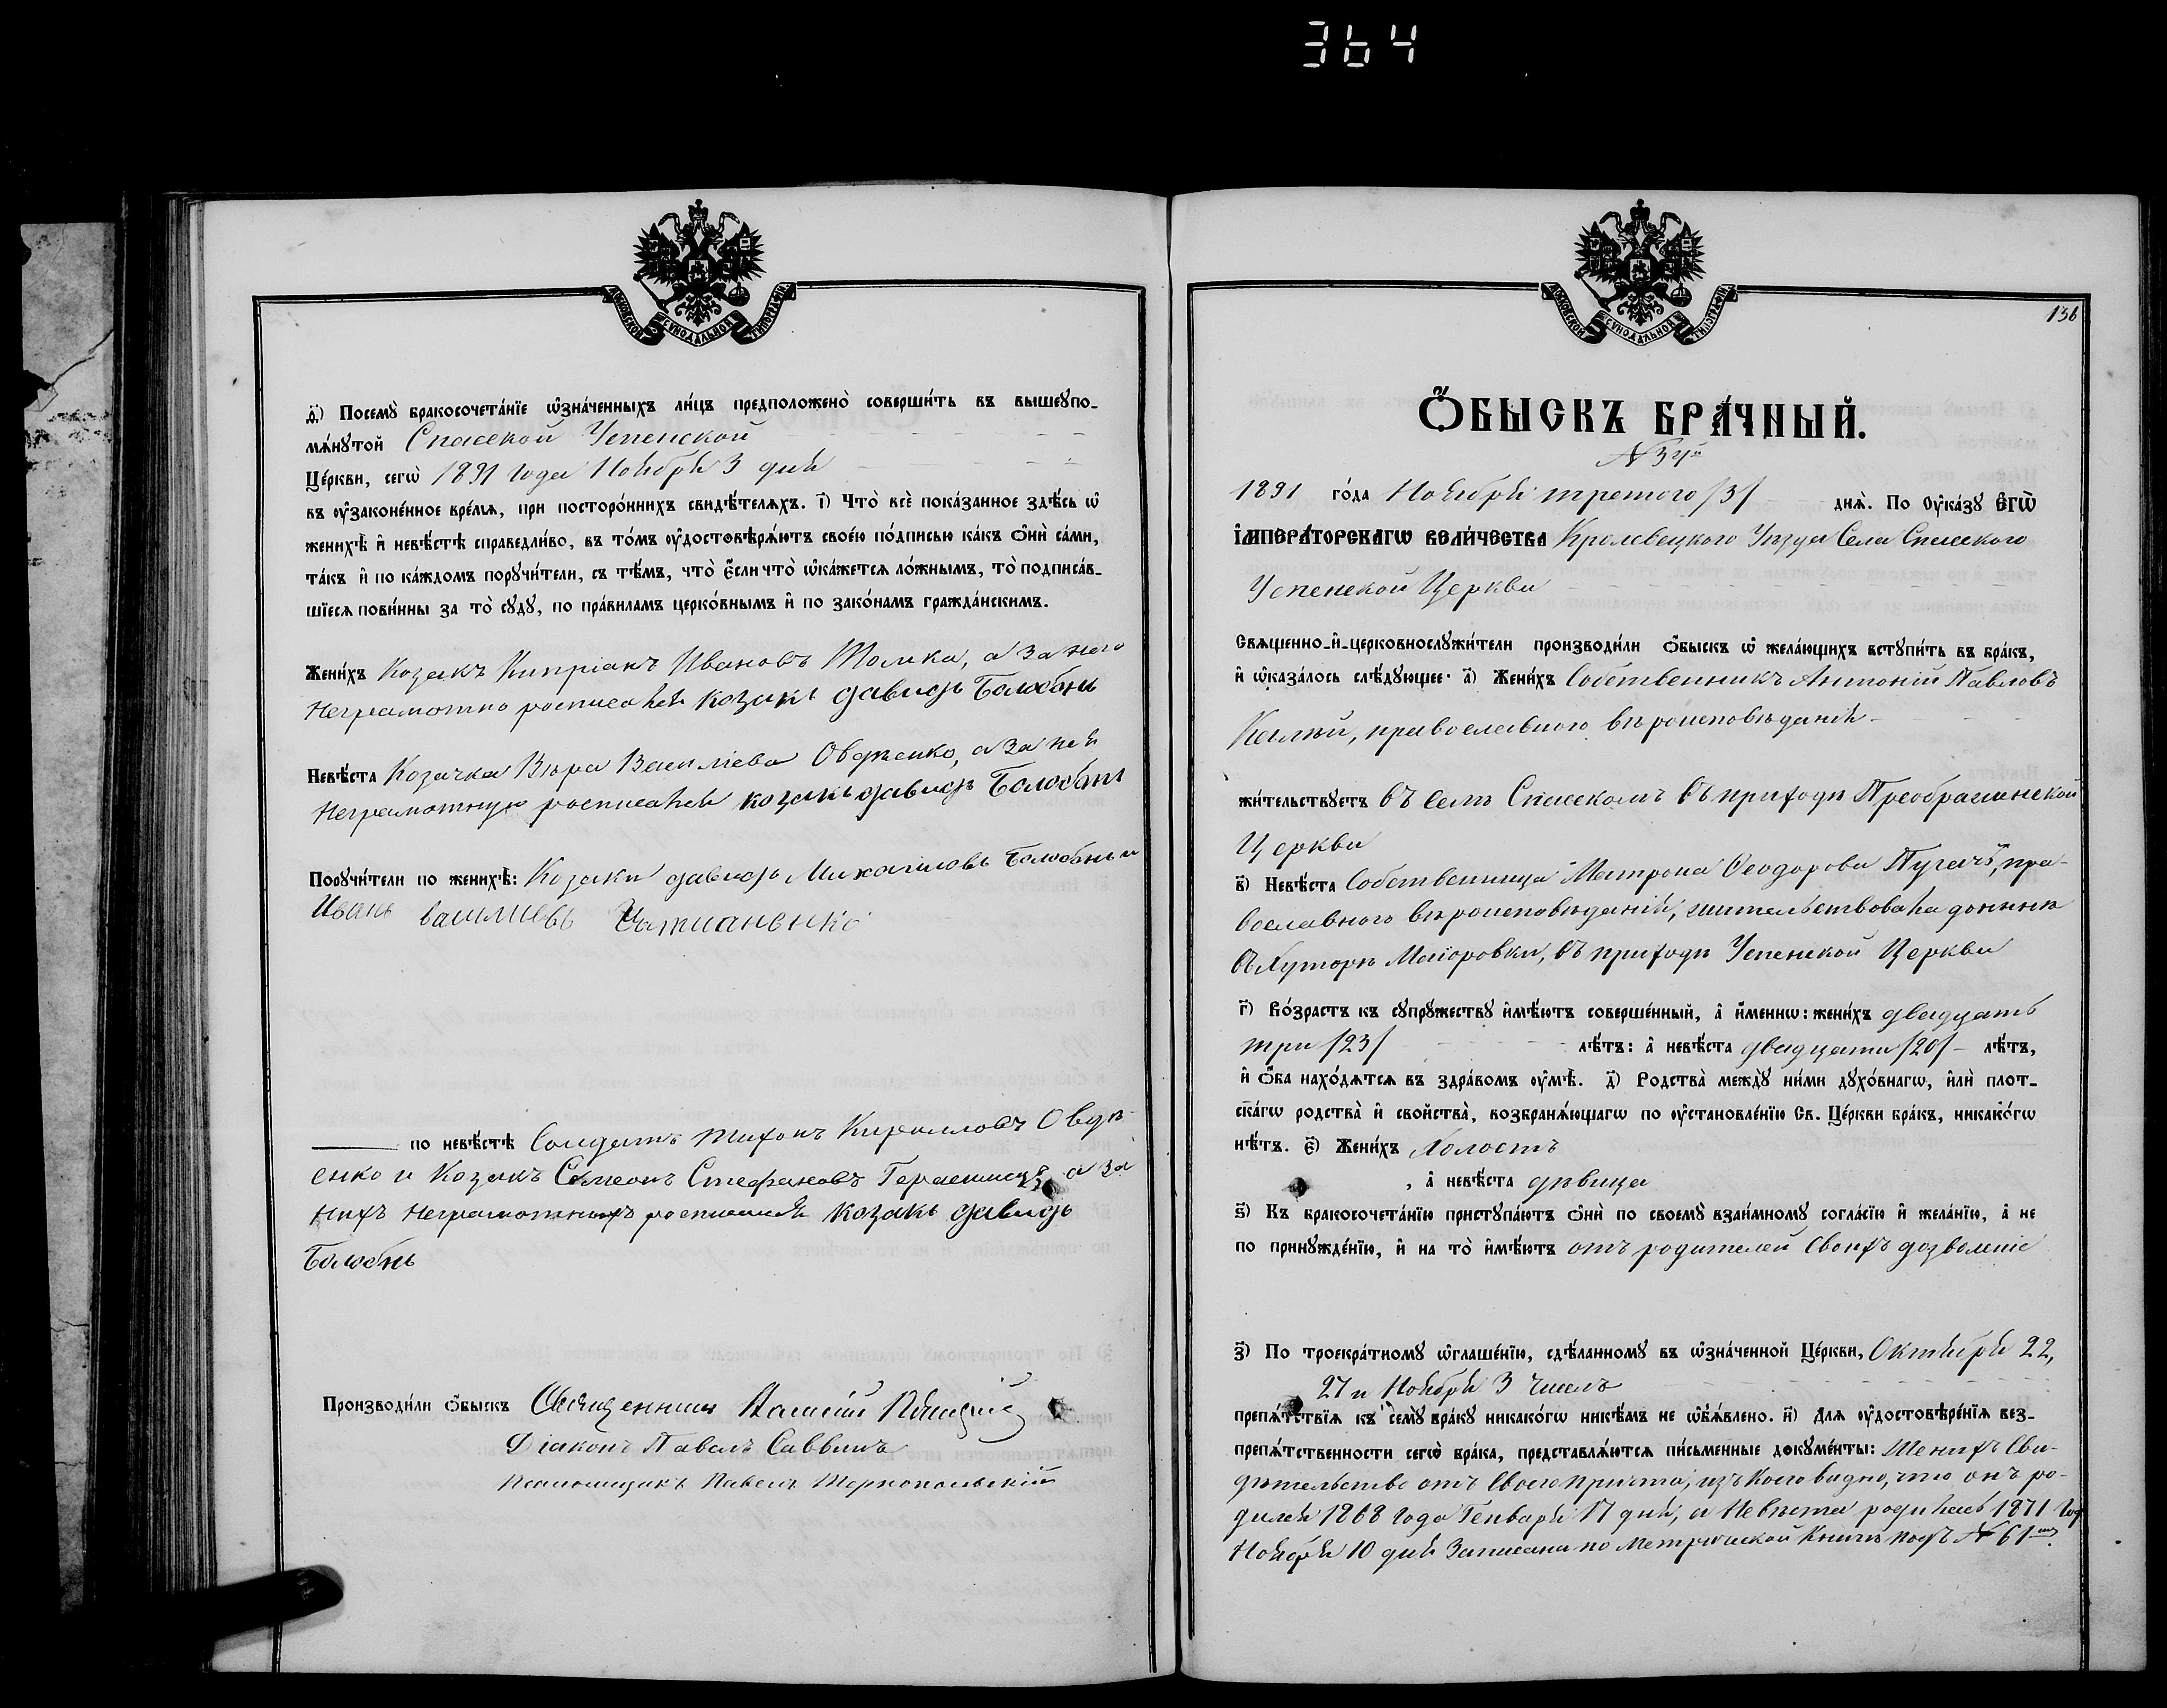 364
МОСКОВСКОЙ СѴНОДАЛЬНОЙ ТИПОГРАФІИ
д҃) Посемꙋ̀ бракосочета́нїе ѡ҆зна́ченныхъ ли́цъ предположено̀ соверши́ть въ вышеꙋпо-
мѧ́нꙋтой Спасской Успенской
Це́ркви, сегѡ̀ 1891 года Ноября 3 дня
въ ᲂу҆законе́нное вре́мѧ, при посторо́ннихъ свидѣ́телѧхъ. і҃) Что̀ всѐ пока́занное здѣ́сь ѡ҆
женихѣ̀ и҆ невѣ́стѣ справедли́во, въ то́мъ ᲂу҆достовѣрѧ́ютъ свое́ю по́дписью ка́къ ѻ҆нѝ са́ми,
та́къ и҆ по ка́ждомъ порꙋчи́тели, съ тѣ́мъ, что̀ є҆́сли что̀ ѡ҆ка́жетсѧ ло́жнымъ, то̀ подписа́в-
шїесѧ пови́нны за то̀ сꙋдꙋ̀, по пра́виламъ церко́внымъ и҆ по зако́намъ гражда́нскимъ.
Жени́хъ Козакъ Кипріанъ Ивановъ Томка, а за него
Неграмотно росписался козакъ давидъ Балобнъ
Невѣ́ста Козачка Вѣра Василіева Овдѣенко, а за ней
Неграмотную росписался козакъ давидъ Балобнъ
Порꙋчи́тели по женихѣ̀: Козаки давидъ Михаиловъ Балобнъ и
Иванъ василиевъ
по невѣ́стѣ Солдатъ Тихонъ Кириловъ Овдѣ-
енко и Козакъ Симеонъ Стефановъ а за
нихъ Неграмотныхъ росписался козакъ давидъ
Балобнъ
Производи́ли ѻ҆́быскъ Священникъ
Діаконъ Павелъ Саввичъ
Псаломщикъ Павелъ Тернопольскій
МОСКОВСКОЙ СѴНОДАЛЬНОЙ ТИПОГРАФІИ
136
Ѻ҆́БЫСКЪ БРА́ЧНЫЙ.
№ 34й
1891 го́да Ноября третого /3/ днѧ̀. По ᲂу҆ка́зꙋ Є҆гѡ̀
І҆мпера́торскагѡ вели́чества Кролевецкого Уѣзда Села Спасского
Успенской Церкви
Свѧщенно-и҆-церковнослꙋжи́тели производи́ли ѻ҆́быскъ ѡ҆ жела́ющихъ встꙋпи́ть въ бра́къ,
и҆ ѡ҆каза́лось слѣ́дꙋющее: а҃) Жени́хъ Собственникъ Антоній Павловъ
православного вѣроисповѣданія
жи́тельствꙋетъ въ селѣ Спасскомъ въ приходѣ Преображенской
Церкви
в҃) Невѣ́ста Собственница Матрона Ѳеодорова Пугачъ, пра-
вославного вѣроисповѣданія, жительствовала донынѣ
въ Хуторѣ Маіоровки, въ приходѣ Успенской Церкви
г҃) Во́зрастъ къ сꙋпрꙋ́жествꙋ и҆мѣ́ютъ соверше́нный, а҆ и҆́меннѡ: жени́хъ двадцать
три /23/ лѣ́тъ: а҆ невѣ́ста двадцати /20/ лѣ́тъ,
и҆ ѻ҆́ба нахо́дѧтсѧ въ здра́вомъ ᲂу҆мѣ̀. д҃) Родства̀ междꙋ̀ ни́ми дꙋхо́внагѡ, и҆лѝ плот-
ска́гѡ родства̀ и҆ свойства̀, возбранѧ́ющагѡ по ᲂу҆становле́нїю Св. Це́ркви бра́къ, никако́гѡ
нѣ́тъ. є҃) Жени́хъ Холостъ
, а҆ невѣ́ста дѣвица
ѕ҃) Къ бракосочета́нїю пристꙋпа́ютъ ѻ҆нѝ по своемꙋ̀ взаи́мномꙋ согла́сїю и҆ жела́нїю, а҆ не
по принꙋжде́нїю, и҆ на то̀ и҆мѣ́ютъ отъ родителей своихъ дозволеніе
з҃) По троекра́тномꙋ ѡ҆глаше́нїю, сдѣ́ланномꙋ въ ѡ҆зна́ченной Це́ркви, Октября 22,
27 и Ноября 3 числъ
препѧ́тствїѧ къ семꙋ̀ бра́кꙋ никако́гѡ никѣ́мъ не ѡ҆б̾ѧ́влено. и҃) Длѧ ᲂу҆достовѣре́нїѧ без-
препѧ́тственности сегѡ̀ бра́ка, представлѧ́ютсѧ пи́сьменные докꙋме́нты: Женихъ Сви-
дѣтельство отъ своего причта, изъ коего видно, что онъ ро-
дился 1868 года Генваря 17 дня, а Невѣста родилась 1871 год
Ноября 10 дня Записана по Метрической Книгѣ подъ № 61мъ